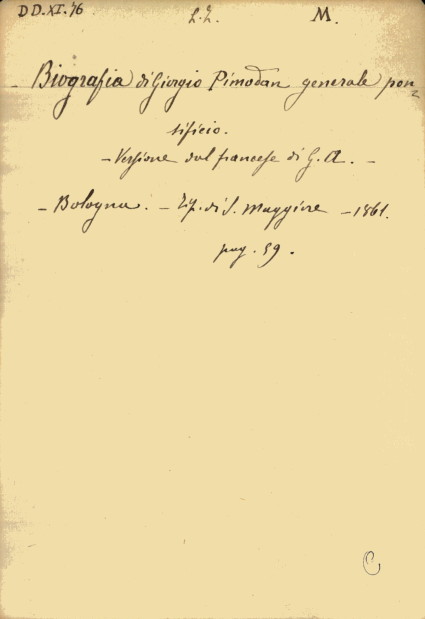 DD.XI.76 L.L. M.
- Biografia di Giorgio Pimodan generale pon=
tificio.
- Versione dal francese di G. A. -
- Bologna. - Tip. di S. Maggiore - 1861.
pag. 59.
C